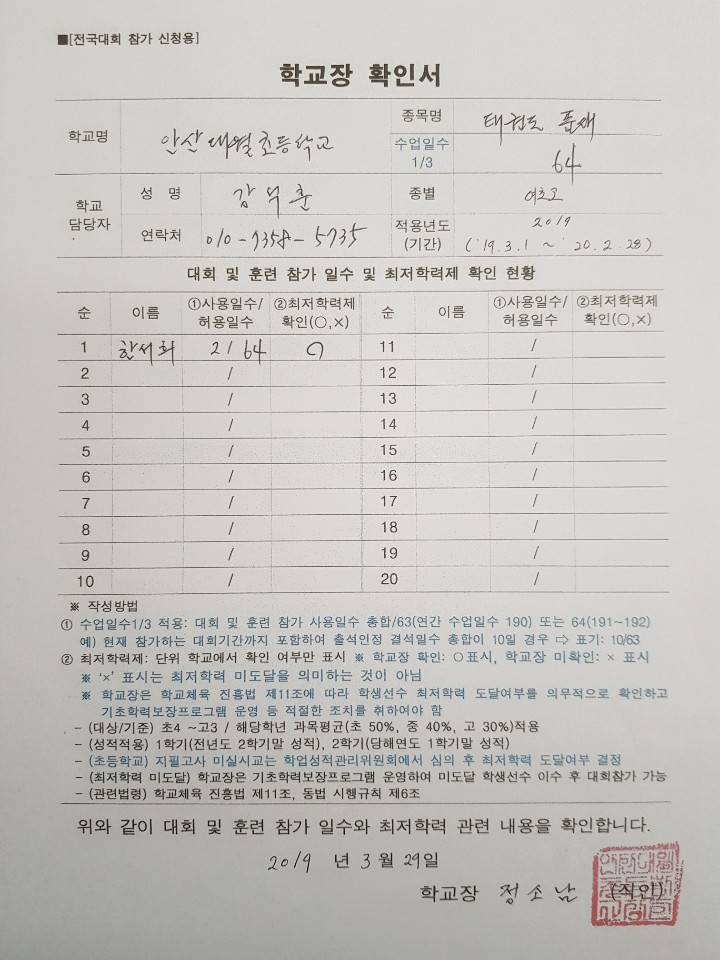 ■[전국대회 참가 신청용]
학교장 확인서
학교명 안산대월초등학교 종목명 태권도 품새
수업일수 1/3 64
학교 담당자 성 명 강 훈 종별 여초고
연락처 010-7358-5735 적용년도 (기간) 2019 ('19.3.1 ~ '20.2.28)
대회 및 훈련 참가 일수 및 최저학력제 확인 현황
순 이름 ①사용일수/허용일수 ②최저학력제 확인(○,×) 순 이름 ①사용일수/허용일수 ②최저학력제 확인(○,×)
1 한서희 2/64 ○ 11 /
2 / 12 /
3 / 13 /
4 / 14 /
5 / 15 /
6 / 16 /
7 / 17 /
8 / 18 /
9 / 19 /
10 / 20 /
※ 작성방법
① 수업일수1/3 적용: 대회 및 훈련 참가 사용일수 총합/63(연간 수업일수 190) 또는 64(191~192)
예) 현재 참가하는 대회기간까지 포함하여 출석인정 결석일수 총합이 10일 경우 ⇨ 표기: 10/63
② 최저학력제: 단위 학교에서 확인 여부만 표시 ※ 학교장 확인: ○표시, 학교장 미확인: × 표시
※ '×' 표시는 최저학력 미도달을 의미하는 것이 아님
※ 학교장은 학교체육 진흥법 제11조에 따라 학생선수 최저학력 도달여부를 의무적으로 확인하고
기초학력보장프로그램 운영 등 적절한 조치를 취하여야 함
- (대상/기준) 초4 ~고3 / 해당학년 과목평균(초 50%, 중 40%, 고 30%)적용
- (성적적용) 1학기(전년도 2학기말 성적), 2학기(당해연도 1학기말 성적)
- (초등학교) 지필고사 미실시교는 학업성적관리위원회에서 심의 후 최저학력 도달여부 결정
- (최저학력 미도달) 학교장은 기초학력보장프로그램 운영하여 미도달 학생선수 이수 후 대회참가 가능
- (관련법령) 학교체육 진흥법 제11조, 동법 시행규칙 제6조
위와 같이 대회 및 훈련 참가 일수와 최저학력 관련 내용을 확인합니다.
2019 년 3 월 29 일
학교장 정소남 (직인)